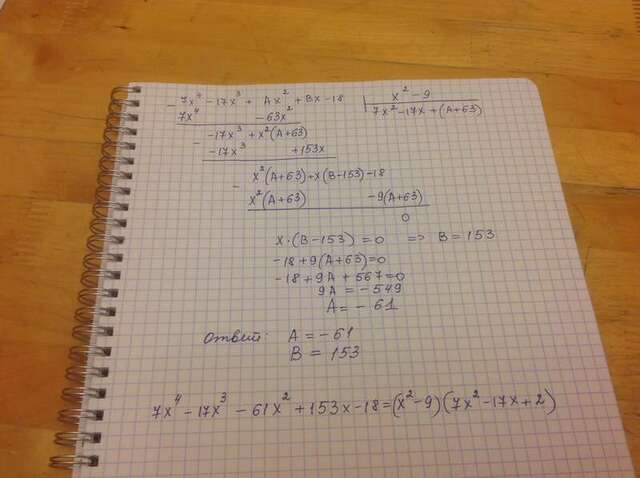 - 7x⁴ - 17x³ + Ax² + Bx - 18 | x² - 9
7x⁴ - 63x² | 7x² - 17x + (A+63)
- -17x³ + x²(A+63)
-17x³ + 153x
- x²(A+63) + x(B-153) - 18
x²(A+63) - 9(A+63)
0
x·(B-153) = 0 => B = 153
-18 + 9(A+63) = 0
-18 + 9A + 567 = 0
9A = -549
A = -61
Ответ: A = -61
B = 153
7x⁴ - 17x³ - 61x² + 153x - 18 = (x² - 9)(7x² - 17x + 2)